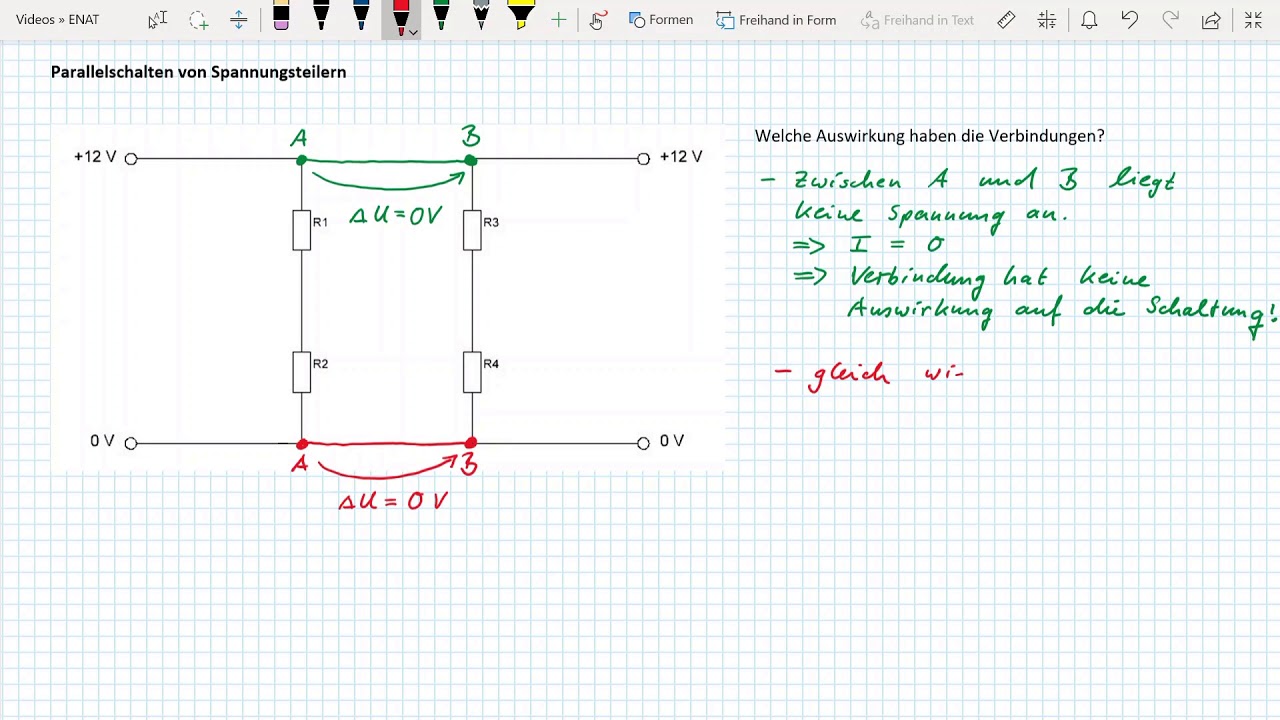 Videos » ENAT
Formen
Freihand in Form
Freihand in Text
Parallelschalten von Spannungsteilern
A
B
+12 V
+12 V
ΔU=0V
R1
R3
R2
R4
0 V
0 V
A
B
ΔU = 0 V
Welche Auswirkung haben die Verbindungen?
- Zwischen A und B liegt
keine Spannung an.
=> I = 0
=> Verbindung hat keine
Auswirkung auf die Schaltung!
- gleich wi-